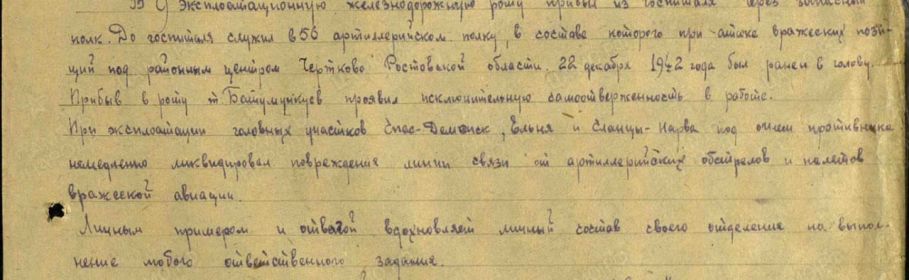 39 Эксплоатационную железнодорожную роту прибыл из госпиталя через запасный
полк. До госпиталя служил в 56 артиллерийском полку, в составе которого при атаке вражеских пози-
ций под районным центром Чертково Ростовской области. 22 декабря 1942 года был ранен в голову.
Прибыв в роту т. Батумункуев проявил исключительную самоотверженность в работе.
При эксплоатации головных участков Спас-Деменск, Ельня и Сланцы-Нарва под огнем противника
немедленно ликвидировал повреждения линии связи от артиллерийских обстрелов и налетов
вражеской авиации.
Личным примером и отвагой вдохновляет личный состав своего отделения на выпол-
нение любого ответственного задания.